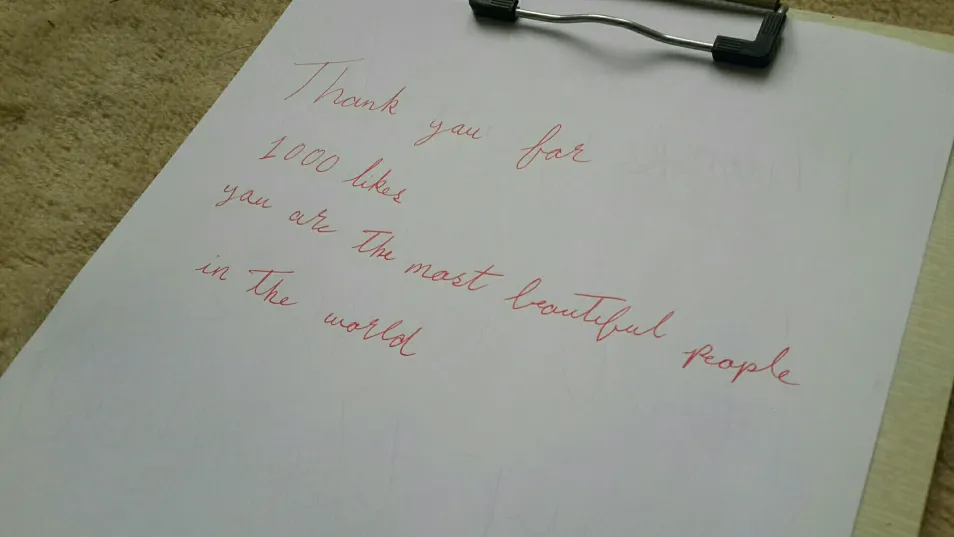 Thank you for
1000 likes
you are the most beautiful people
in the world